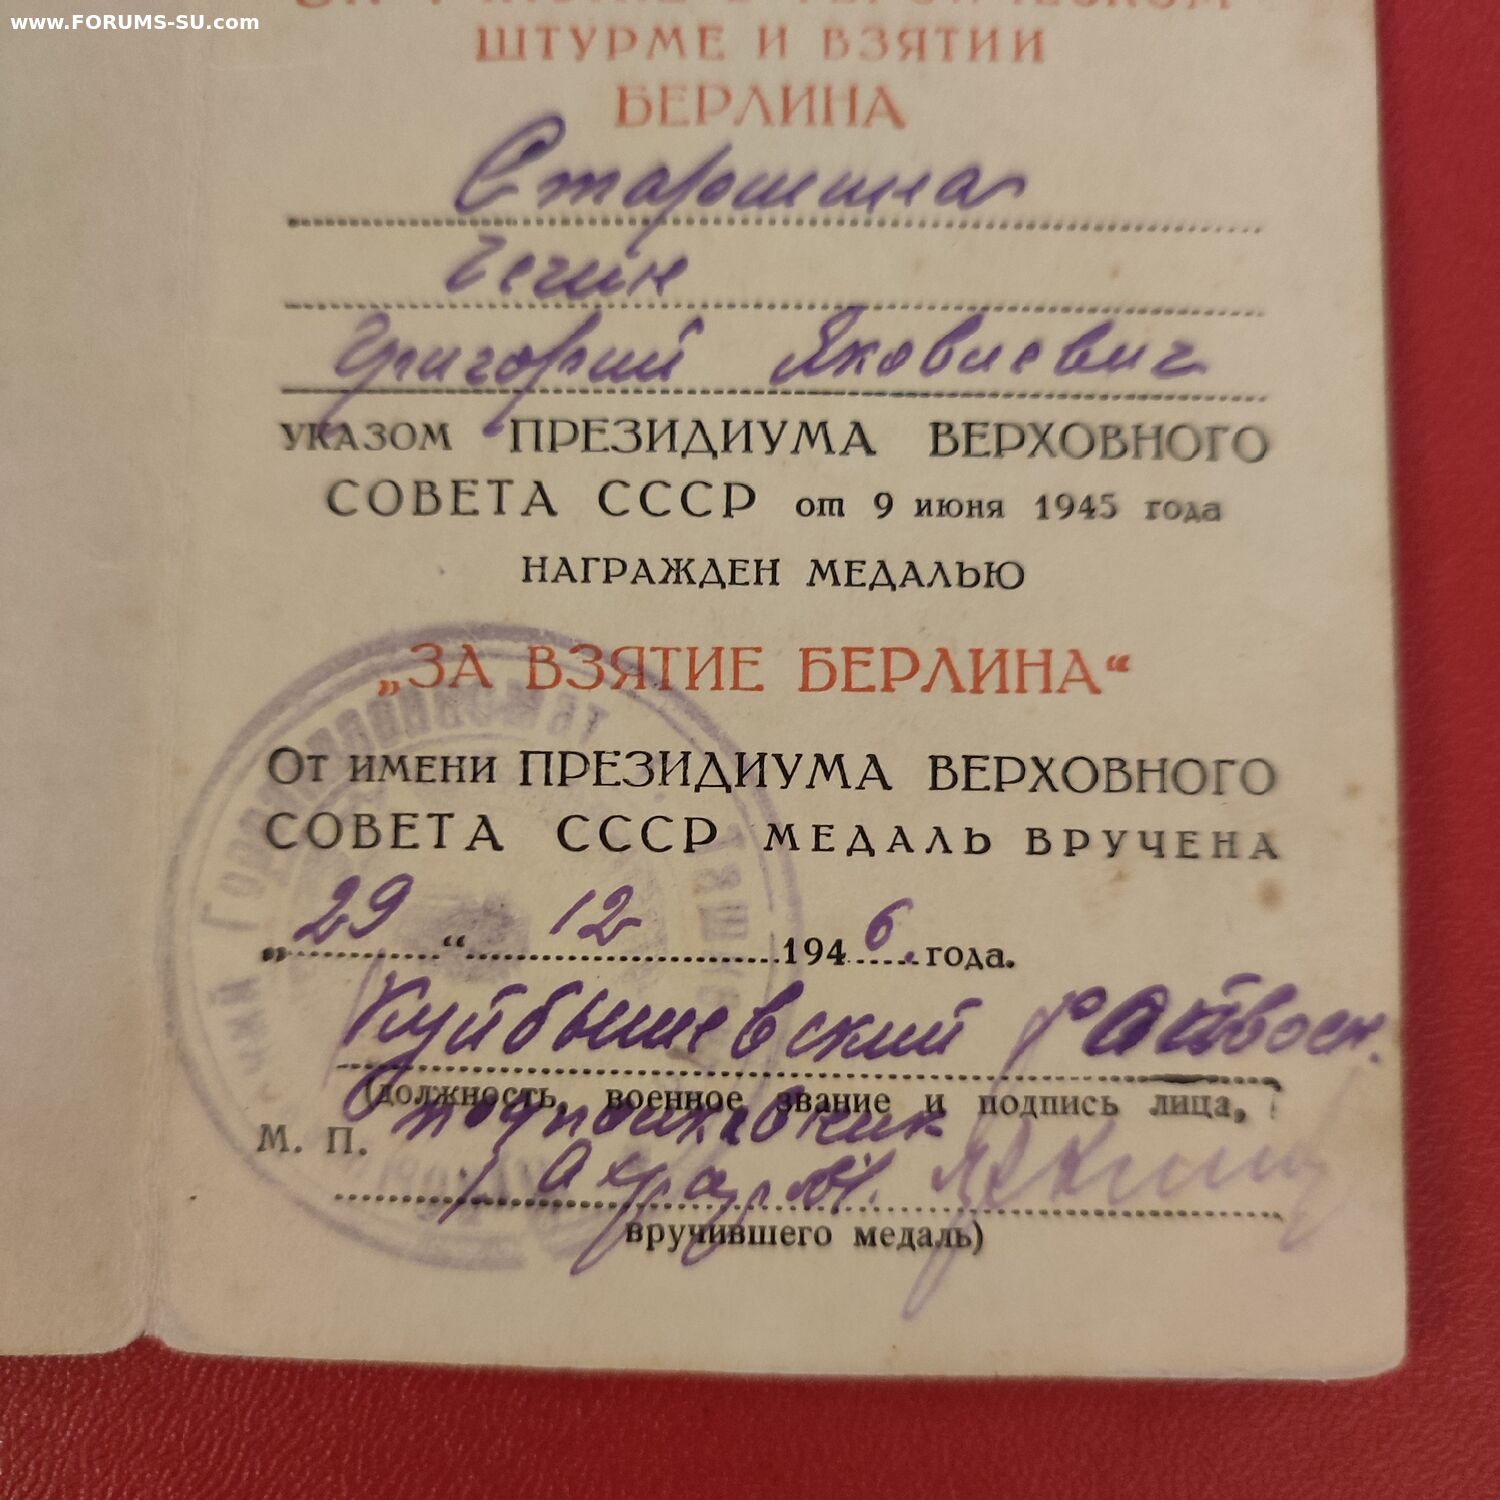 www.FORUMS-SU.com
ШТУРМЕ И ВЗЯТИИ
БЕРЛИНА
Старшина
Чечин
Григорий Яковлевич
УКАЗОМ ПРЕЗИДИУМА ВЕРХОВНОГО
СОВЕТА СССР от 9 июня 1945 года
НАГРАЖДЕН МЕДАЛЬЮ
„ЗА ВЗЯТИЕ БЕРЛИНА“
ОТ ИМЕНИ ПРЕЗИДИУМА ВЕРХОВНОГО
СОВЕТА СССР МЕДАЛЬ ВРУЧЕНА
„29“ 12 1946. года.
Куйбышевский райвоен.
(должность, военное звание и подпись лица,
М. П. подполковник
вручившего медаль)